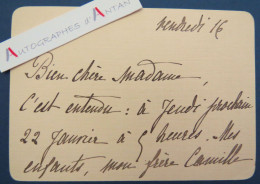 AUTOGRAPHES D'ANTAN
vendredi 16
Bien chère Madame,
C'est entendu : à Jeudi prochain
22 Janvier à 5 heures. Mes
enfants, mon frère Camille